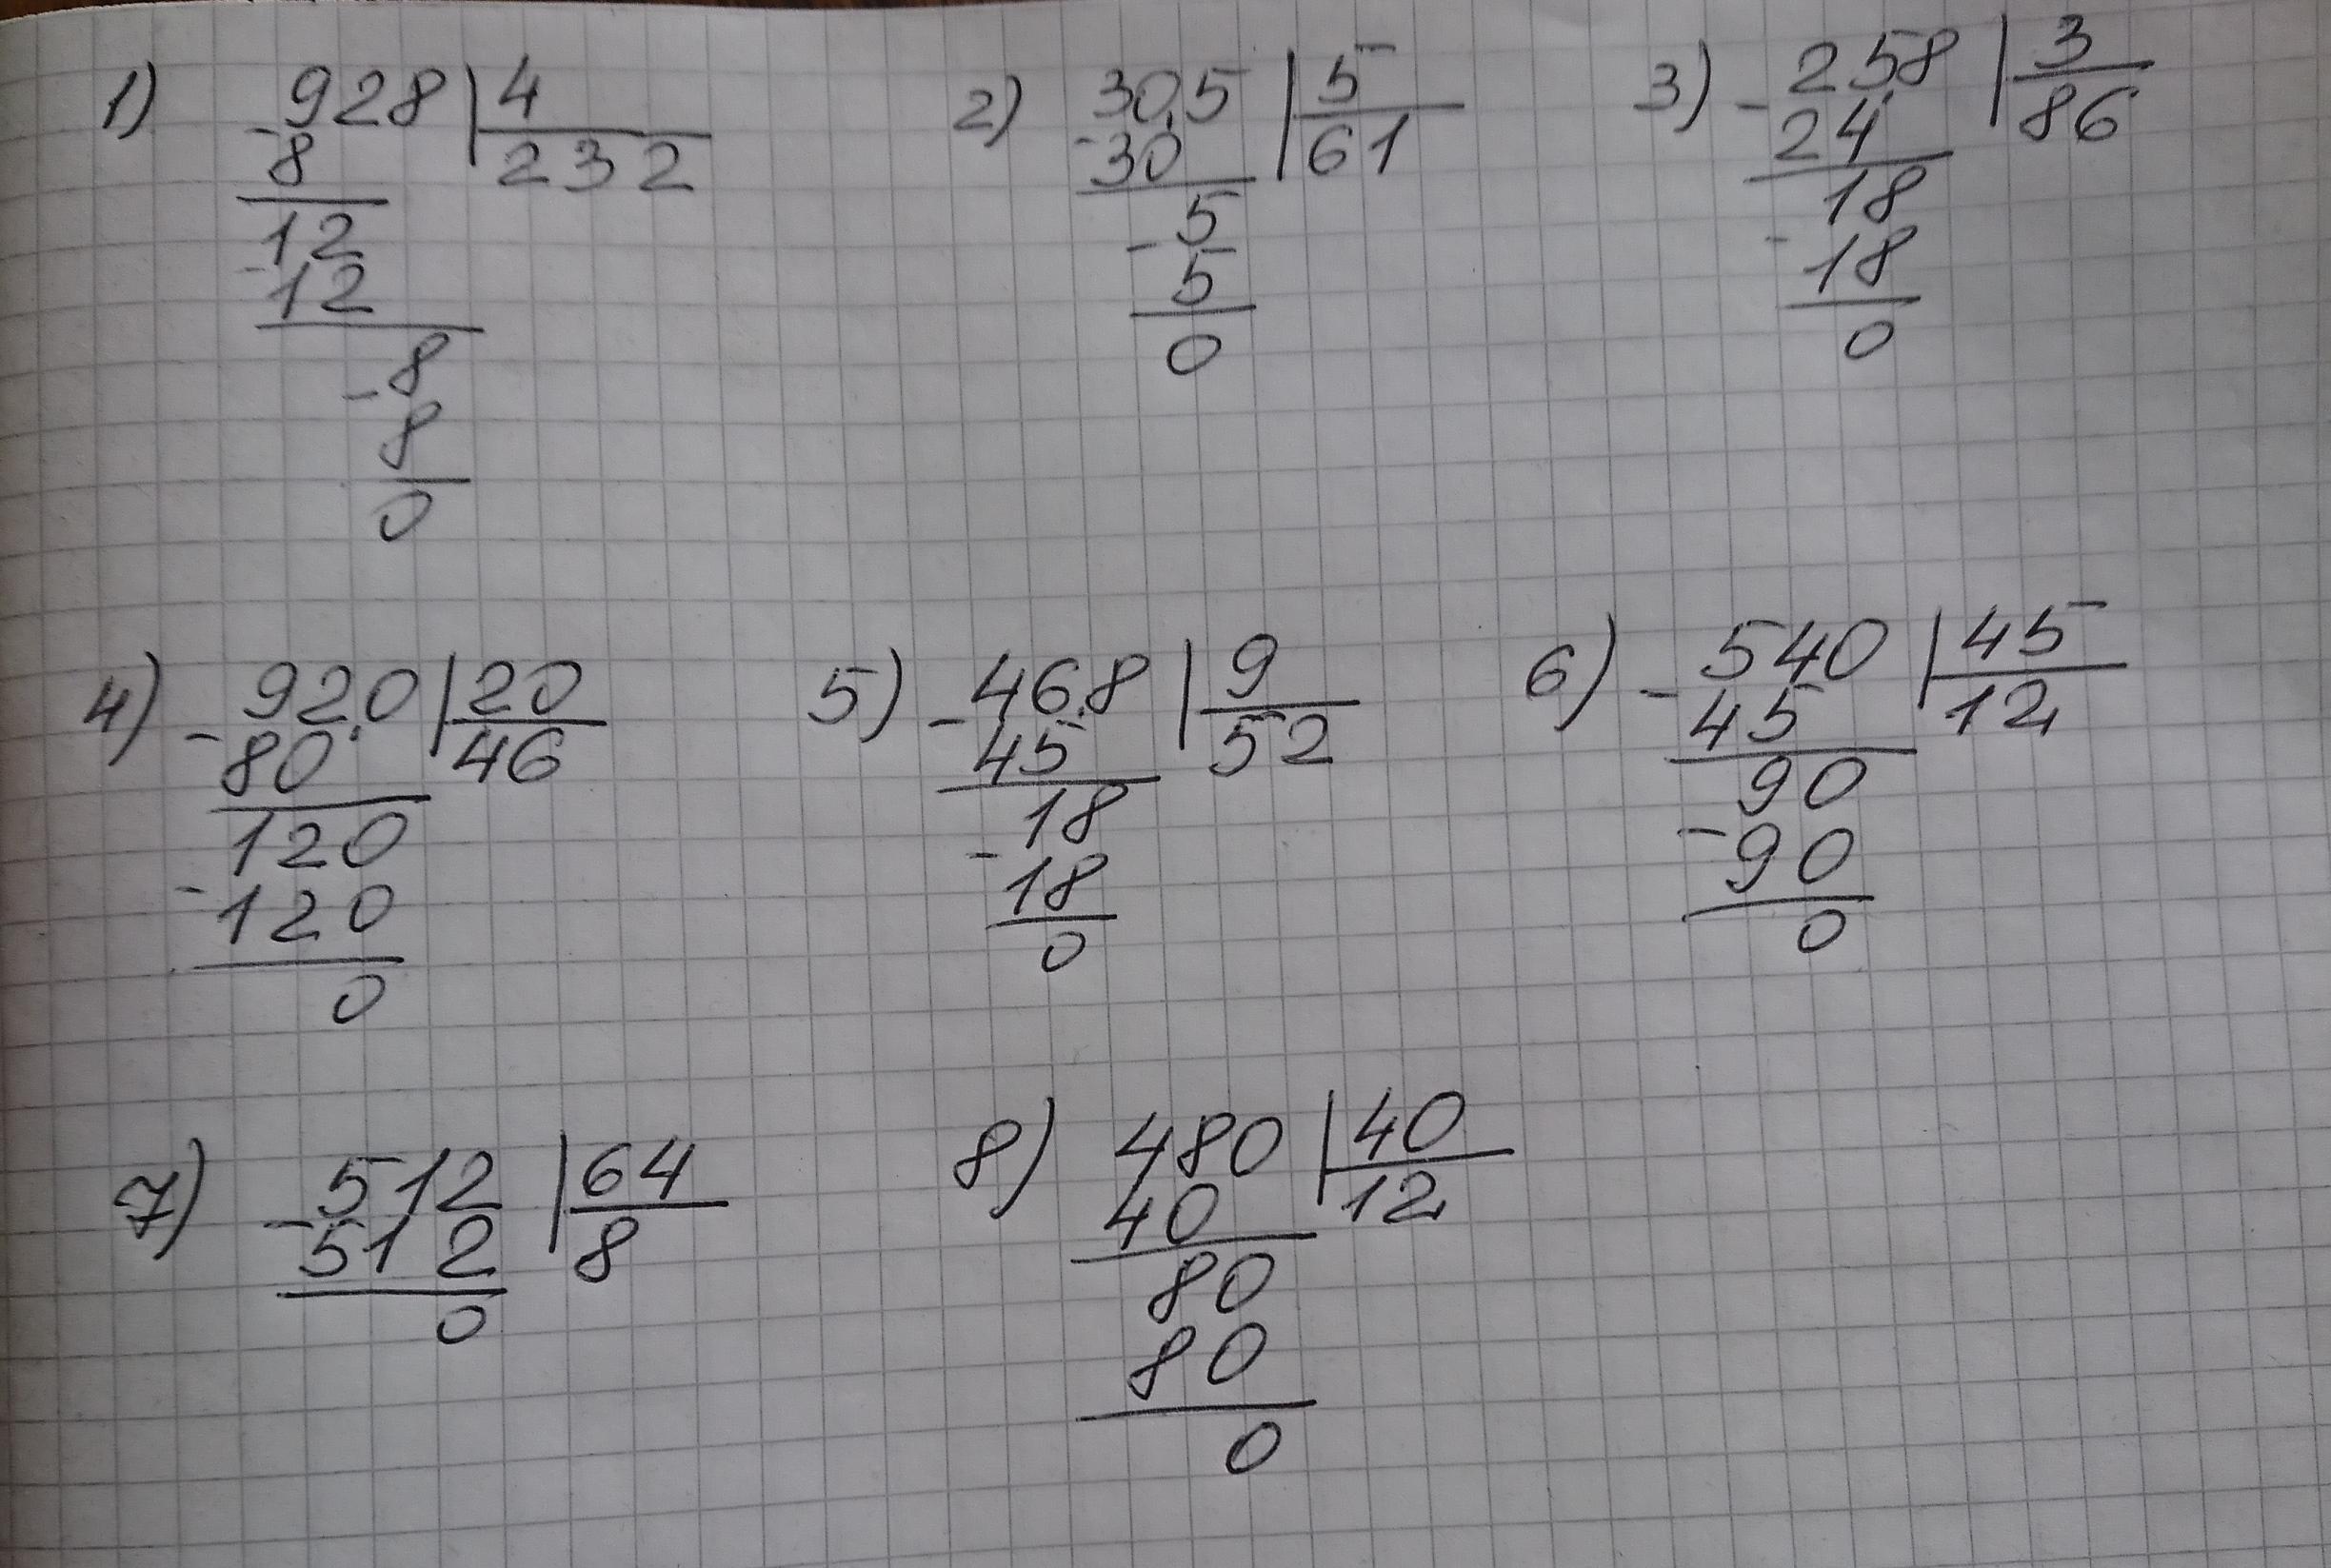 1) 928 | 4
- 8 232
12
- 12
- 8
8
0
2) 305 | 5
- 30 61
- 5
5
0
3) - 258 | 3
24 86
18
- 18
0
4) - 920 | 20
80 46
120
- 120
0
5) - 468 | 9
45 52
- 18
18
0
6) - 540 | 45
45 12
90
- 90
0
7) - 512 | 64
512 8
0
8) 480 | 40
40 12
80
80
0